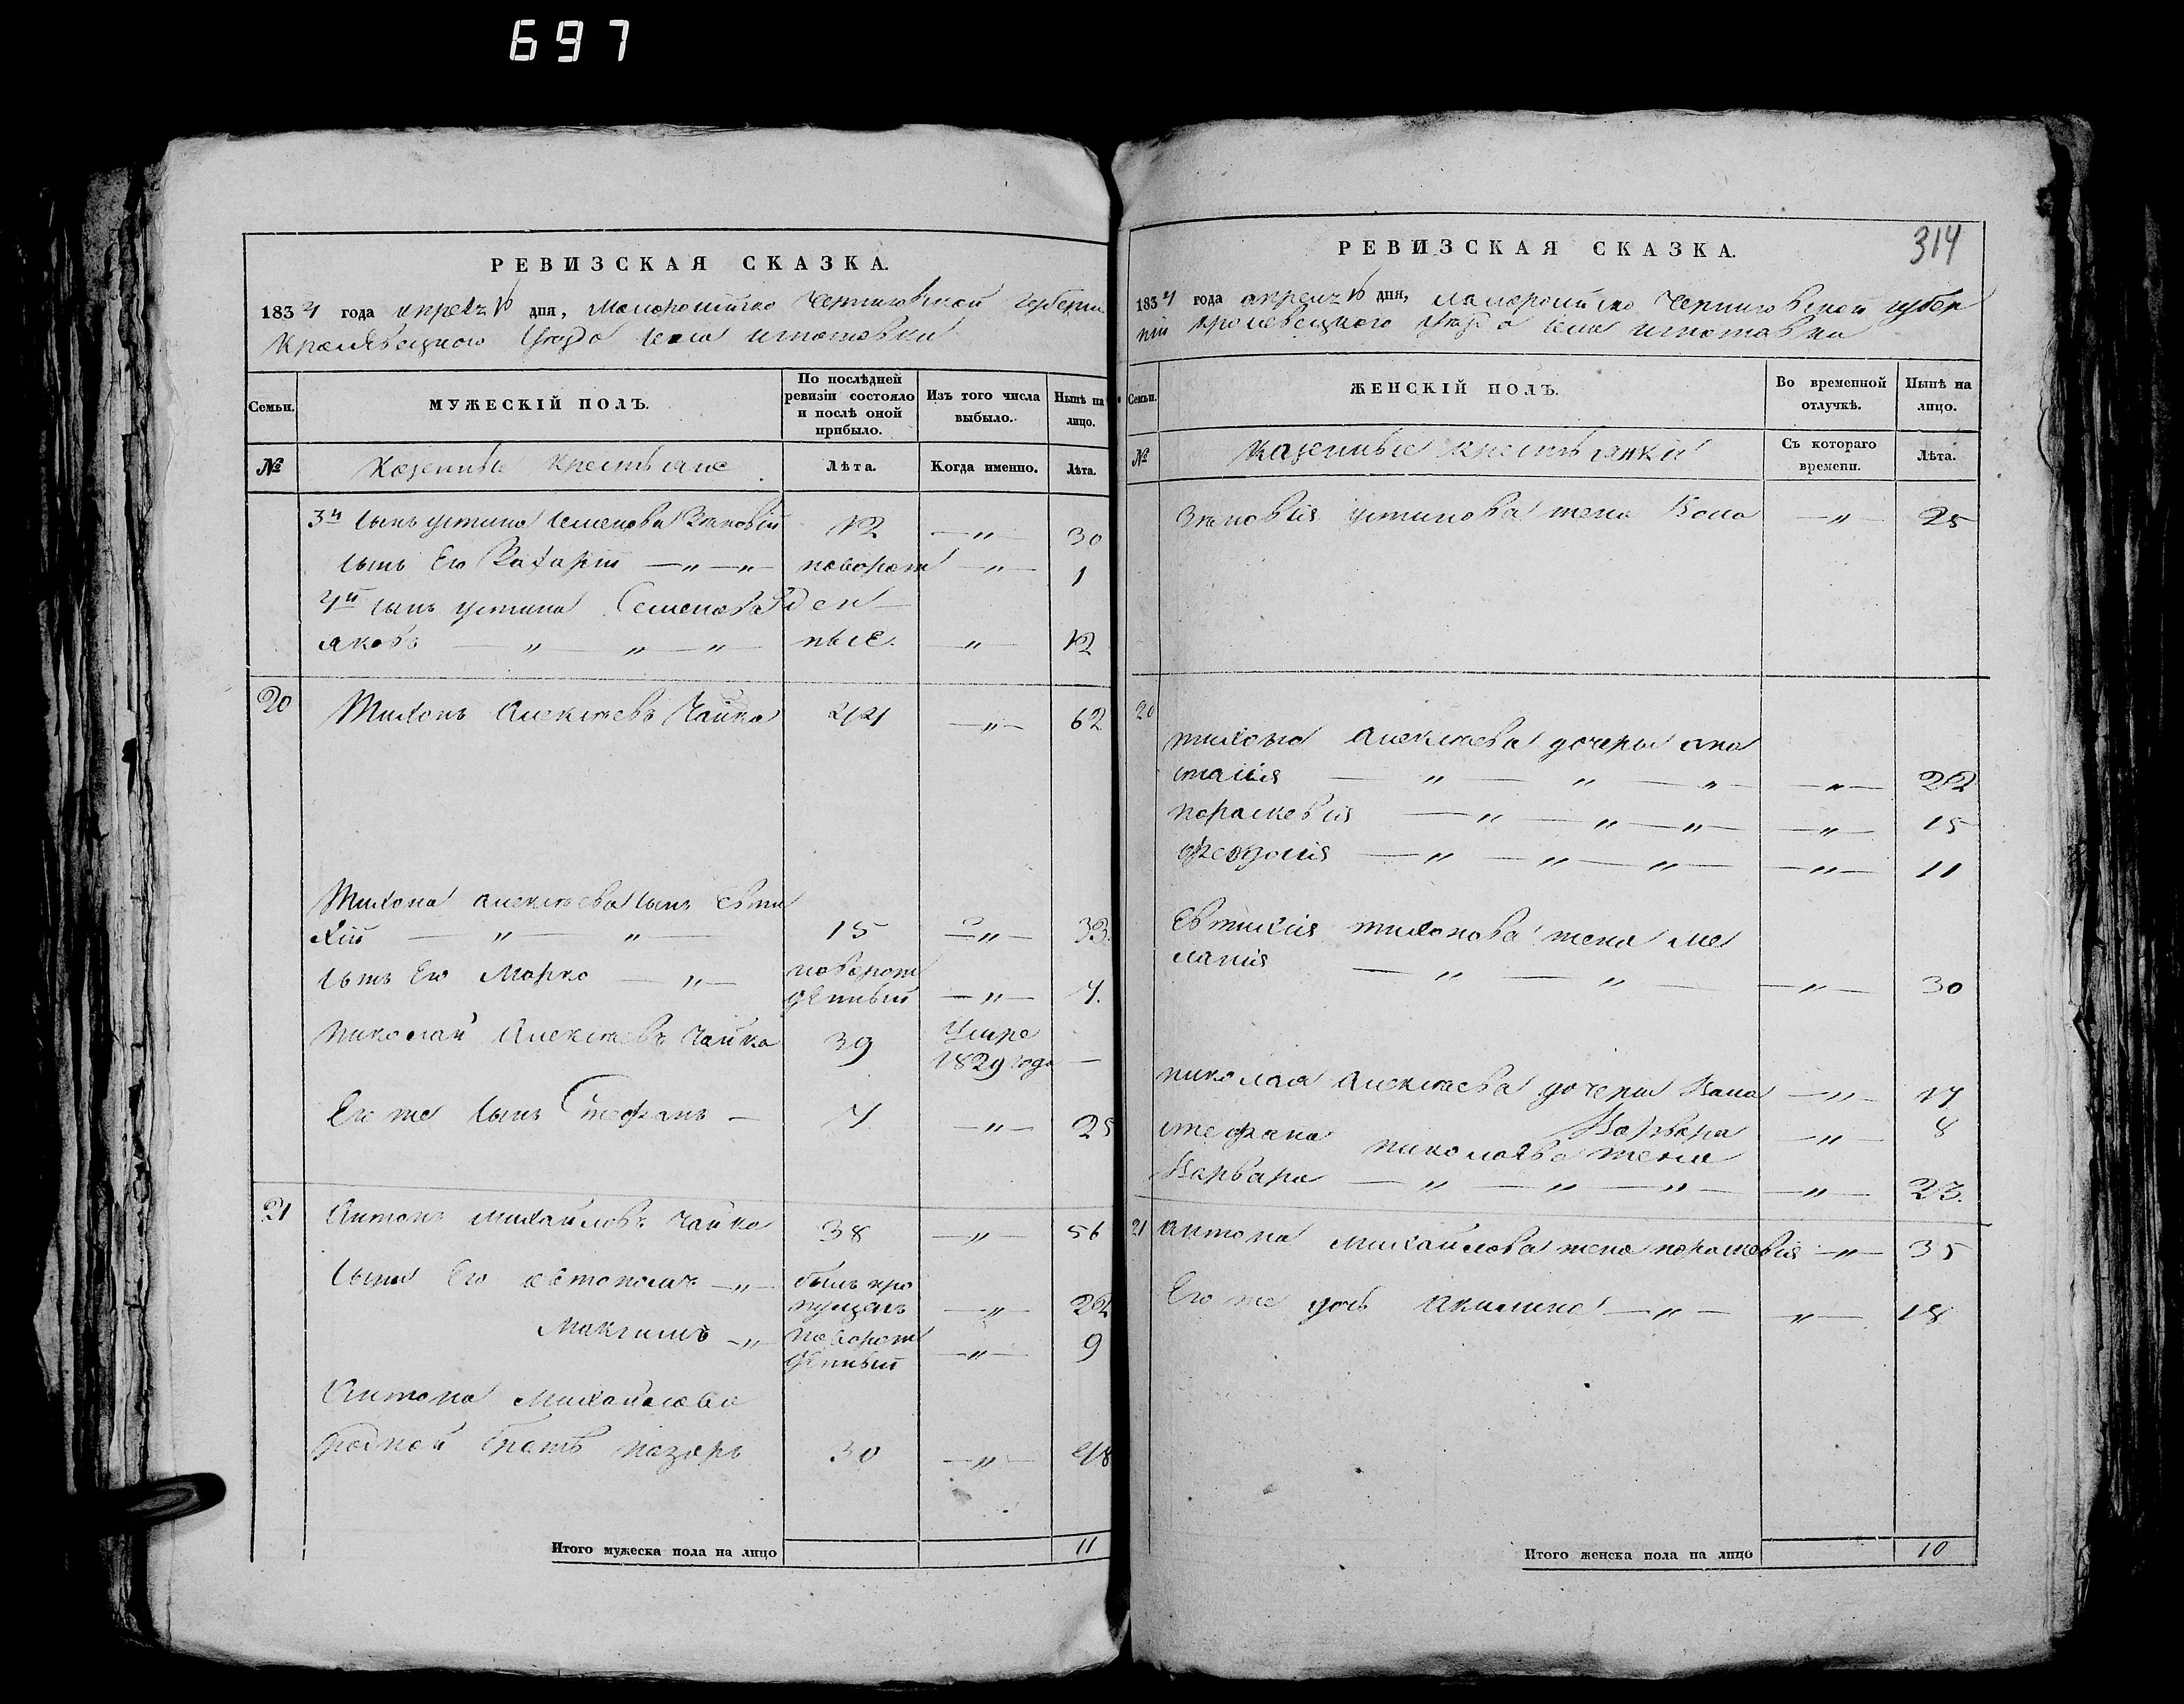 697
РЕВИЗСКАЯ СКАЗКА.
1834 года апреля 16 дня, Малороссійско Черниговской Губерніи
Кролевецкого Уезда Села игнатовки
Семьи.
МУЖЕСКІЙ ПОЛЪ.
По послѣдней ревизіи состояло и послѣ оной прибыло.
Изъ того числа выбыло.
Нынѣ на лицо.
№
Казенные Крестьяне
Лѣта.
Когда именно.
Лѣта.
3й сынъ устина Семенова Зиновій 12 —„— 30
сынъ Его Захарій —„—„— новорож —„— 1
4й сынъ устина Семенова ден
яковъ — „ — „ — „ — ные. —„— 12
20 Тихонъ Алексѣевъ Чайка 44 —„— 62
Тихона алексѣева сынъ Евти
хій — „ — „ — 15 —„— 33.
сынъ Его Марко —„— новорож
денный —„— 4.
Николай Алексѣевъ Чайка 39 Умре
1829 года —
Его же сынъ Стефанъ — 7 —„— 25
21 Антонъ михайловъ Чайка 38 —„— 56
сыны Его автономъ —„— былъ про
пущенъ —„— 22
Максимъ —„— новорож
денный —„— 9
Антона Михайлова
родной братъ назаръ 30 —„— 48
Итого мужеска пола на лицо 11
314
РЕВИЗСКАЯ СКАЗКА.
1834 года апреля 16 дня, малоросийско Черниговской губер
ніи кролевецкого уезда села игнатовки
Семьи.
ЖЕНСКІЙ ПОЛЪ.
Во временной отлучкѣ.
Нынѣ на лицо.
№
Казенные крестьянки
Съ котораго времени.
Лѣта.
Зиновія устинова жена —„— 25
20
тихона Алексѣева дочери ана
стасія — „ — „ — „ — —„— 22
порасковія — „ — „ — „ — —„— 15
Феодосія — „ — „ — „ — —„— 11
Евтихія тихонова жена Ме
ланія — „ — „ — —„— 30
николая Алексѣева дочери —„— 17
Варвара —„— 8
стефана николаева жена
Варвара — „ — „ — „ — —„— 23.
21 антона михайлова жена порасковія —„— 35
Его же дочь акилина —„— —„— 18
Итого женска пола на лицо 10